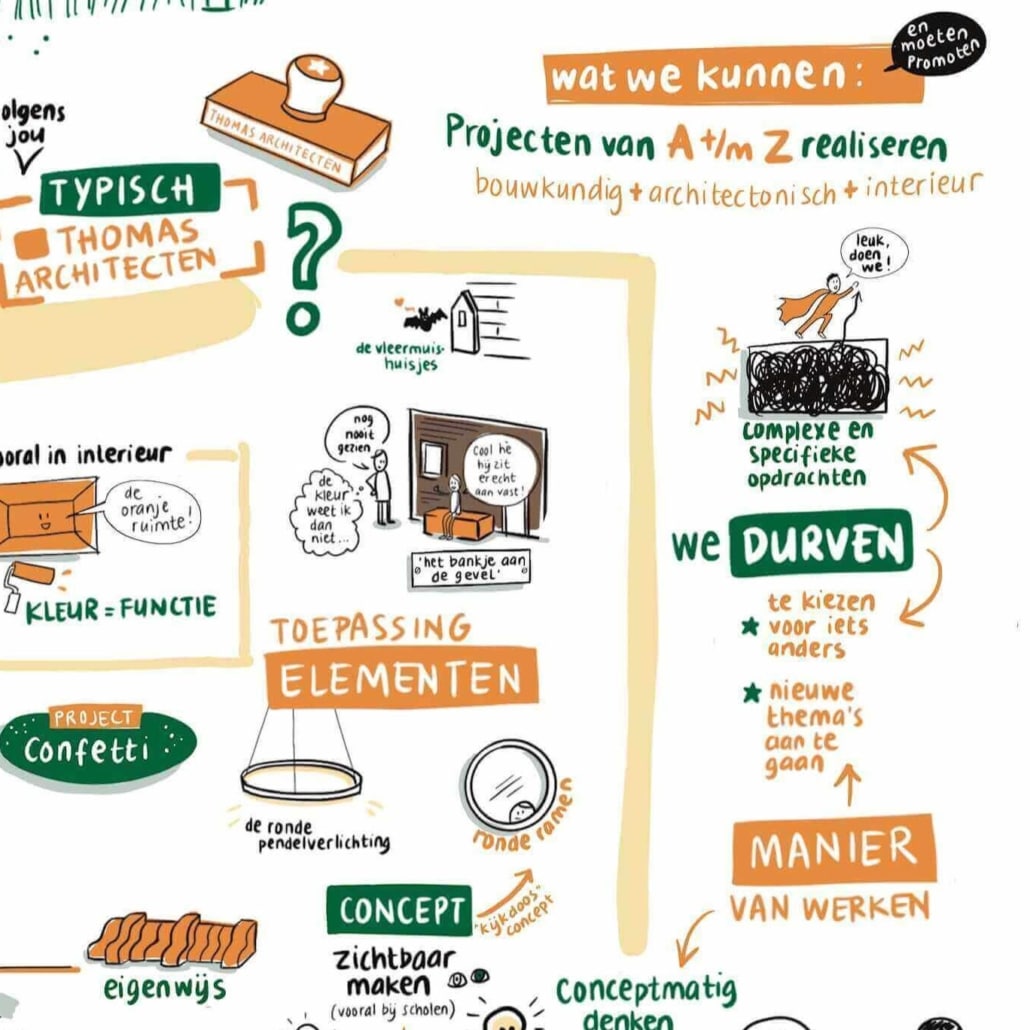 en
moeten
promoten
wat we kunnen:
Projecten van A t/m Z realiseren
bouwkundig + architectonisch + interieur
THOMAS ARCHITECTEN
olgens
jou
TYPISCH
THOMAS
ARCHITECTEN
?
leuk,
doen
we!
de vleermuis-
huisjes
nog
nooit
gezien
de
kleur
weet ik
dan
niet...
Cool hè
hij zit
er echt
aan vast!
'het bankje aan
de gevel'
complexe en
specifieke
opdrachten
we DURVEN
te kiezen
voor iets
anders
nieuwe
thema's
aan te
gaan
MANIER
VAN WERKEN
Conceptmatig
denken
ooral in interieur
de
oranje
ruimte!
KLEUR = FUNCTIE
TOEPASSING
ELEMENTEN
PROJECT
Confetti
de ronde
pendelverlichting
ronde ramen
CONCEPT
'kijkdoos-
concept
zichtbaar
maken
(vooral bij scholen)
eigenwijs